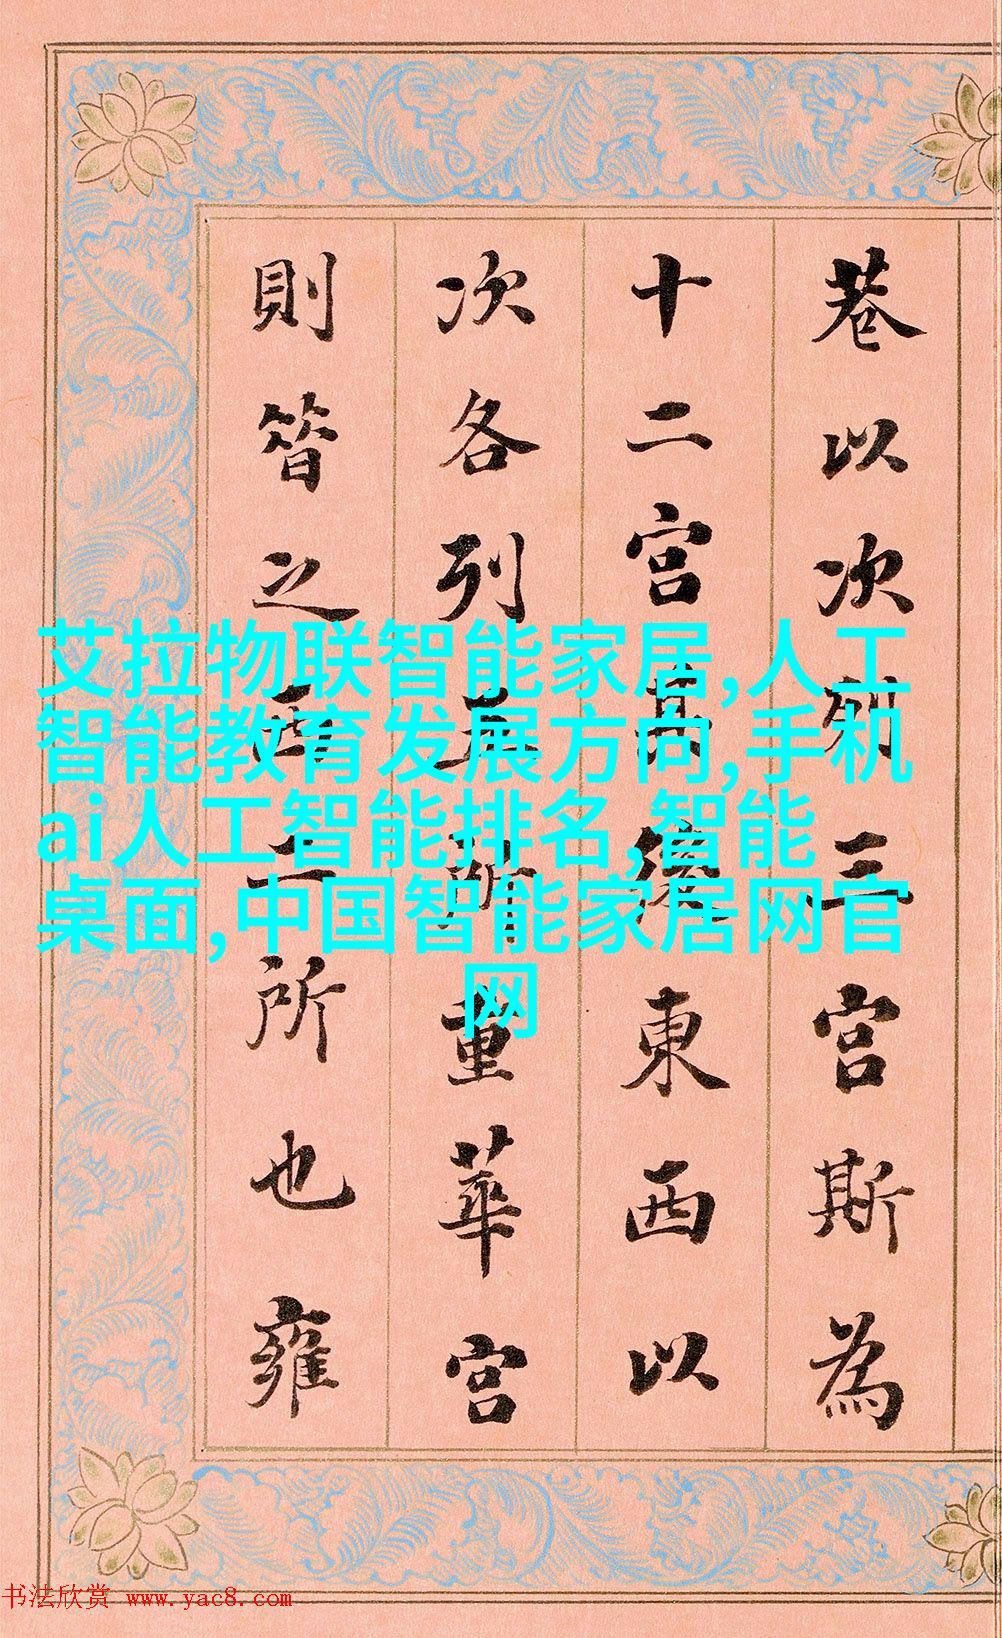 巷以次列三宫斯為
十二宫其後東西以
次各列五所重華宫
則昔之西二所也雍
艾拉物联智能家居,人工
智能教育发展方向,手机
ai人工智能排名,智能
桌面,中国智能家居网官
网
书法欣赏 www.yac8.com